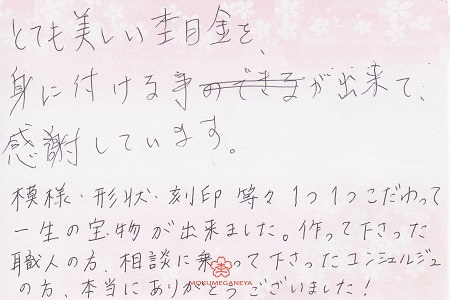 とても美しい杢目金を、
身に付ける事のできるが出来て、
感謝しています。
模様・形状・刻印等々1つ1つこだわって
一生の宝物が出来ました。作って下さった
職人の方、相談に乗って下さったコンシェルジュ
の方、本当にありがとうございました!
杢
MOKUMEGANEYA